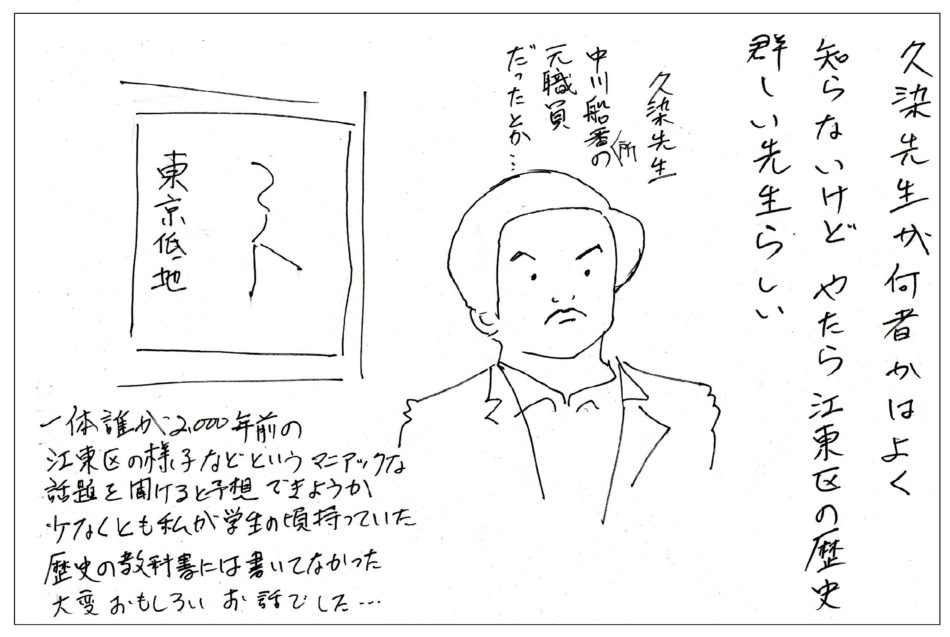 久染先生が何者かはよく
知らないけど やたら江東区の歴史
群しい先生らしい
久染先生
中川船番所の
元職員
だったとか…
東京低地
一体誰が2,000年前の
江東区の様子などというマニアックな
話題を聞けると予想できようか
少なくとも私が学生の頃持っていた
歴史の教科書には書いてなかった
大変おもしろいお話でした…